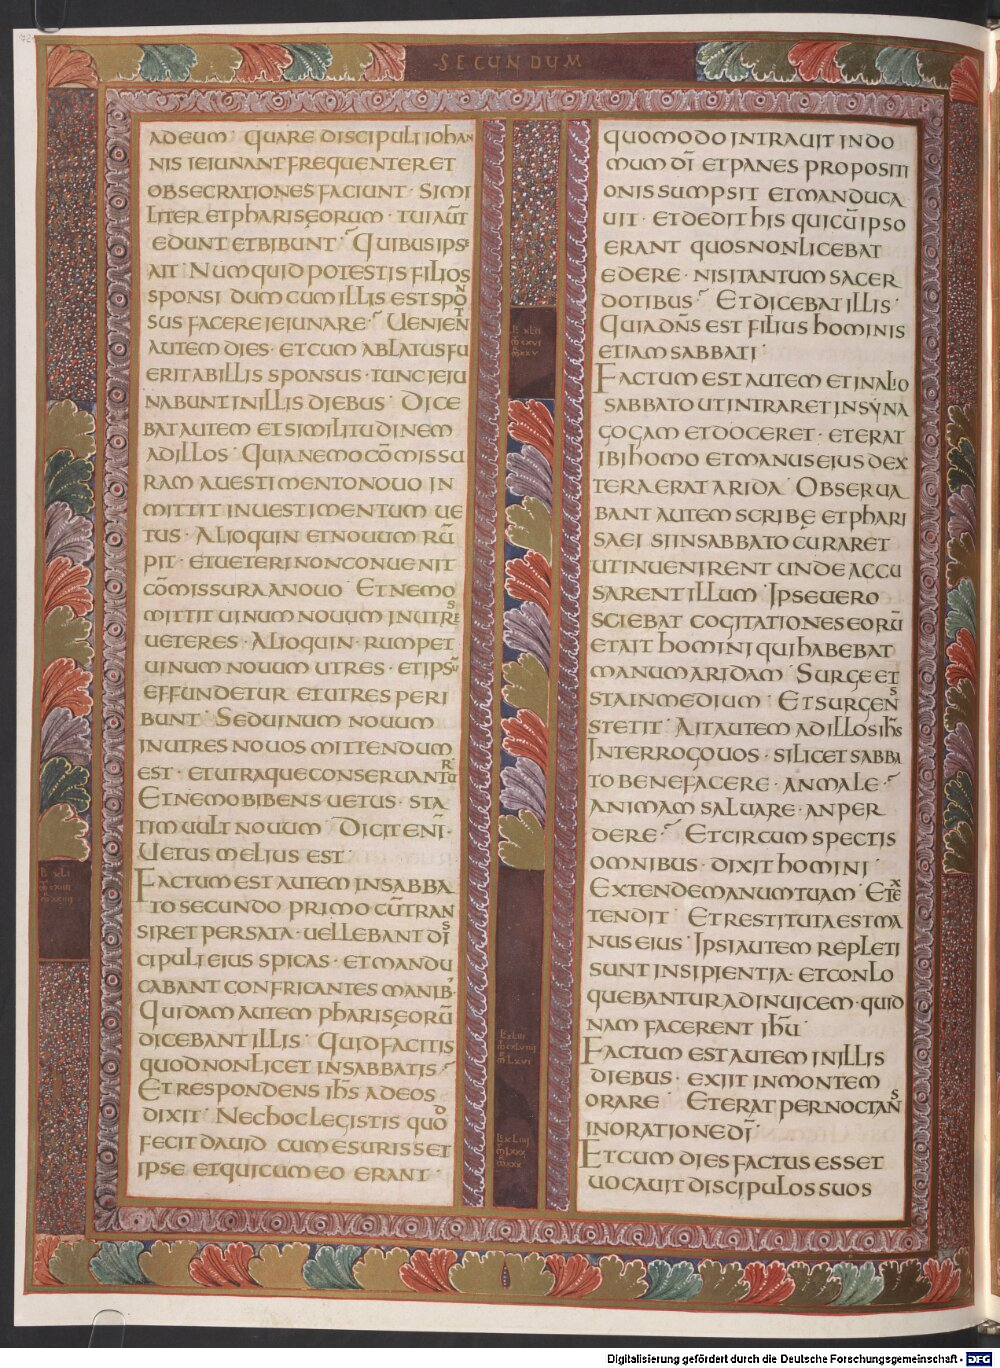 72
SECUNDUM
AD EUM QUARE DISCIPULI IOHAN
NIS IEIUNANT FREQUENTER ET
OBSECRATIONES FACIUNT · SIMI
LITER ET PHARISEORUM · TUI AUT̄
EDUNT ET BIBUNT · QUIBUS IPSE
AIT · NUMQUID POTESTIS FILIOS
SPONSI DUM CUM ILLIS EST SPON
SUS FACERE IEIUNARE · UENIENT
AUTEM DIES · ET CUM ABLATUS FU
ERIT AB ILLIS SPONSUS · TUNC IEIU
NABUNT IN ILLIS DIEBUS · DICE
BAT AUTEM ET SIMILITUDINEM
AD ILLOS · QUIA NEMO CŌMISSU
RAM A UESTIMENTO NOUO IN
MITTIT IN UESTIMENTUM UE
TUS · ALIOQUIN ET NOUUM RŪ
PIT · ET UETERI NON CONUENIT
CŌMISSURA A NOUO · ET NEMO
MITTIT UINUM NOUUM IN UTRES
UETERES · ALIOQUIN · RUMPET
UINUM NOUUM UTRES · ET IPSŪ
EFFUNDETUR ET UTRES PERI
BUNT · SED UINUM NOUUM
IN UTRES NOUOS MITTENDUM
EST · ET UTRAQUE CONSERUANTUR
ET NEMO BIBENS UETUS · STA
TIM UULT NOUUM · DICIT ENĪ ·
UETUS MELIUS EST ·
FACTUM EST AUTEM IN SABBA
TO SECUNDO PRIMO CŪ TRAN
SIRET PER SATA · UELLEBANT DIS
CIPULI EIUS SPICAS · ET MANDU
CABANT CONFRICANTES MANIB·
QUIDAM AUTEM PHARISEORŪ
DICEBANT ILLIS · QUID FACITIS
QUOD NON LICET IN SABBATIS ·
ET RESPONDENS IH̄S AD EOS
DIXIT · NEC HOC LEGISTIS QUOD
FECIT DAUID CUM ESURISSET
IPSE ET QUI CUM EO ERANT ·
QUOMODO INTRAUIT IN DO
MUM DĪ ET PANES PROPOSITI
ONIS SUMPSIT ET MANDUCA
UIT · ET DEDIT HIS QUI CŪ IPSO
ERANT QUOS NON LICEBAT
EDERE · NISI TANTUM SACER
DOTIBUS · ET DICEBAT ILLIS ·
QUIA DN̄S EST FILIUS HOMINIS
ETIAM SABBATI ·
FACTUM EST AUTEM ET IN ALIO
SABBATO UT INTRARET IN SYNA
GOGAM ET DOCERET · ET ERAT
IBI HOMO ET MANUS EIUS DEX
TERA ERAT ARIDA · OBSERUA
BANT AUTEM SCRIBĘ ET PHARI
SAEI SI IN SABBATO CURARET
UT INUENIRENT UNDE ACCU
SARENT ILLUM · IPSE UERO
SCIEBAT COGITATIONES EORŪ
ET AIT HOMINI QUI HABEBAT
MANUM ARIDAM · SURGE ET
STA IN MEDIUM · ET SURGENS
STETIT · AIT AUTEM AD ILLOS IH̄S
INTERROGO UOS · SI LICET SABBA
TO BENEFACERE · AN MALE ·
ANIMAM SALUARE · AN PER
DERE · ET CIRCUMSPECTIS
OMNIBUS · DIXIT HOMINI ·
EXTENDE MANUM TUAM · ET EX
TENDIT · ET RESTITUTA EST MA
NUS EIUS · IPSI AUTEM REPLETI
SUNT INSIPIENTIA · ET CONLO
QUEBANTUR AD INUICEM · QUID
NAM FACERENT IH̄U ·
FACTUM EST AUTEM IN ILLIS
DIEBUS · EXIIT IN MONTEM
ORARE · ET ERAT PERNOCTANS
IN ORATIONE DĪ ·
ET CUM DIES FACTUS ESSET
UOCAUIT DISCIPULOS SUOS
Digitalisierung gefördert durch die Deutsche Forschungsgemeinschaft - DFG